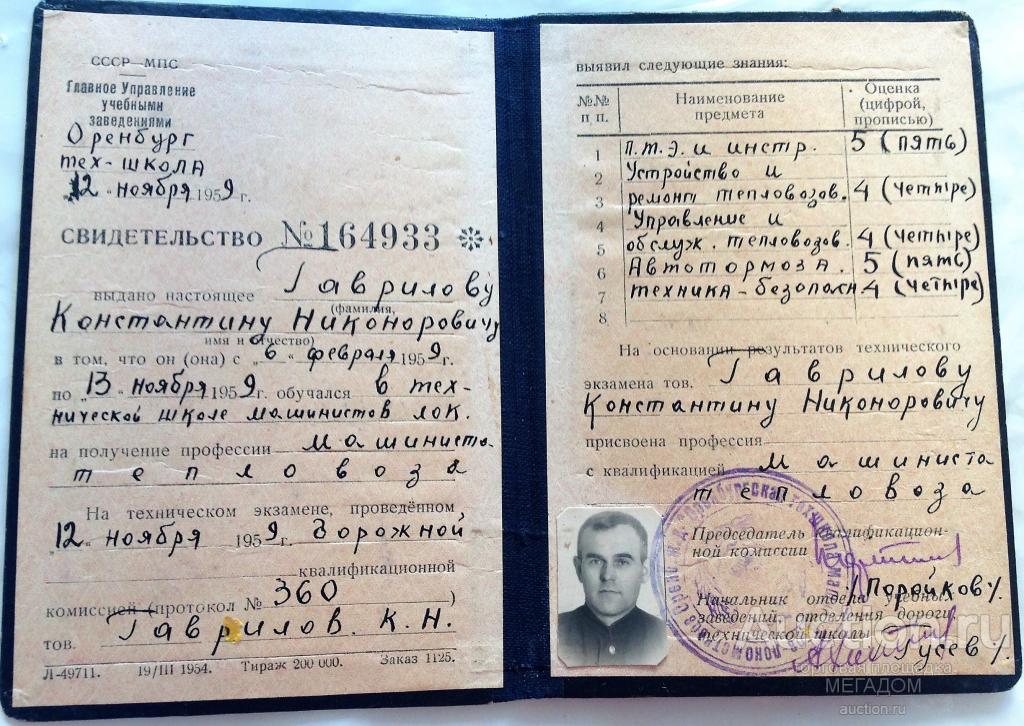 СССР—МПС
Главное Управление
учебными
заведениями
Оренбург
тех-школа
"12" ноября 1959 г.
СВИДЕТЕЛЬСТВО №164933
выдано настоящее Гаврилову
(фамилия,
Константину Никоноровичу
имя и отчество)
в том, что он (она) с "6" февраля 1959 г.
по "13" ноября 1959 г. обучался в тех-
нической школе машинистов лок.
на получение профессии машиниста
тепловоза
На техническом экзамене, проведённом
"12" ноября 1959 г. Дорожной
квалификационной
комиссией (протокол № 360)
тов. Гаврилов. К. Н.
Л-49711. 19/III 1954. Тираж 200 000. Заказ 1125.
выявил следующие знания:
№№ п п. Наименование предмета Оценка (цифрой, прописью)
1 П.Т.Э. и инстр. 5 (пять)
2 Устройство и
3 ремонт тепловозов. 4 (четыре)
4 Управление и
5 обслуж. тепловозов. 4 (четыре)
6 Автотормоза. 5 (пять)
7 техника-безопасн 4 (четыре)
8
На основании результатов технического
экзамена тов. Гаврилову
Константину Никоноровичу
присвоена профессия
с квалификацией машиниста
тепловоза
Председатель квалификацион-
ной комиссии
/Поройков/.
Начальник отдела учебных
заведений, отделения дороги
технической школы
Гусев/.
auction.ru
торговая площадка
МЕГАДОМ
auction.ru